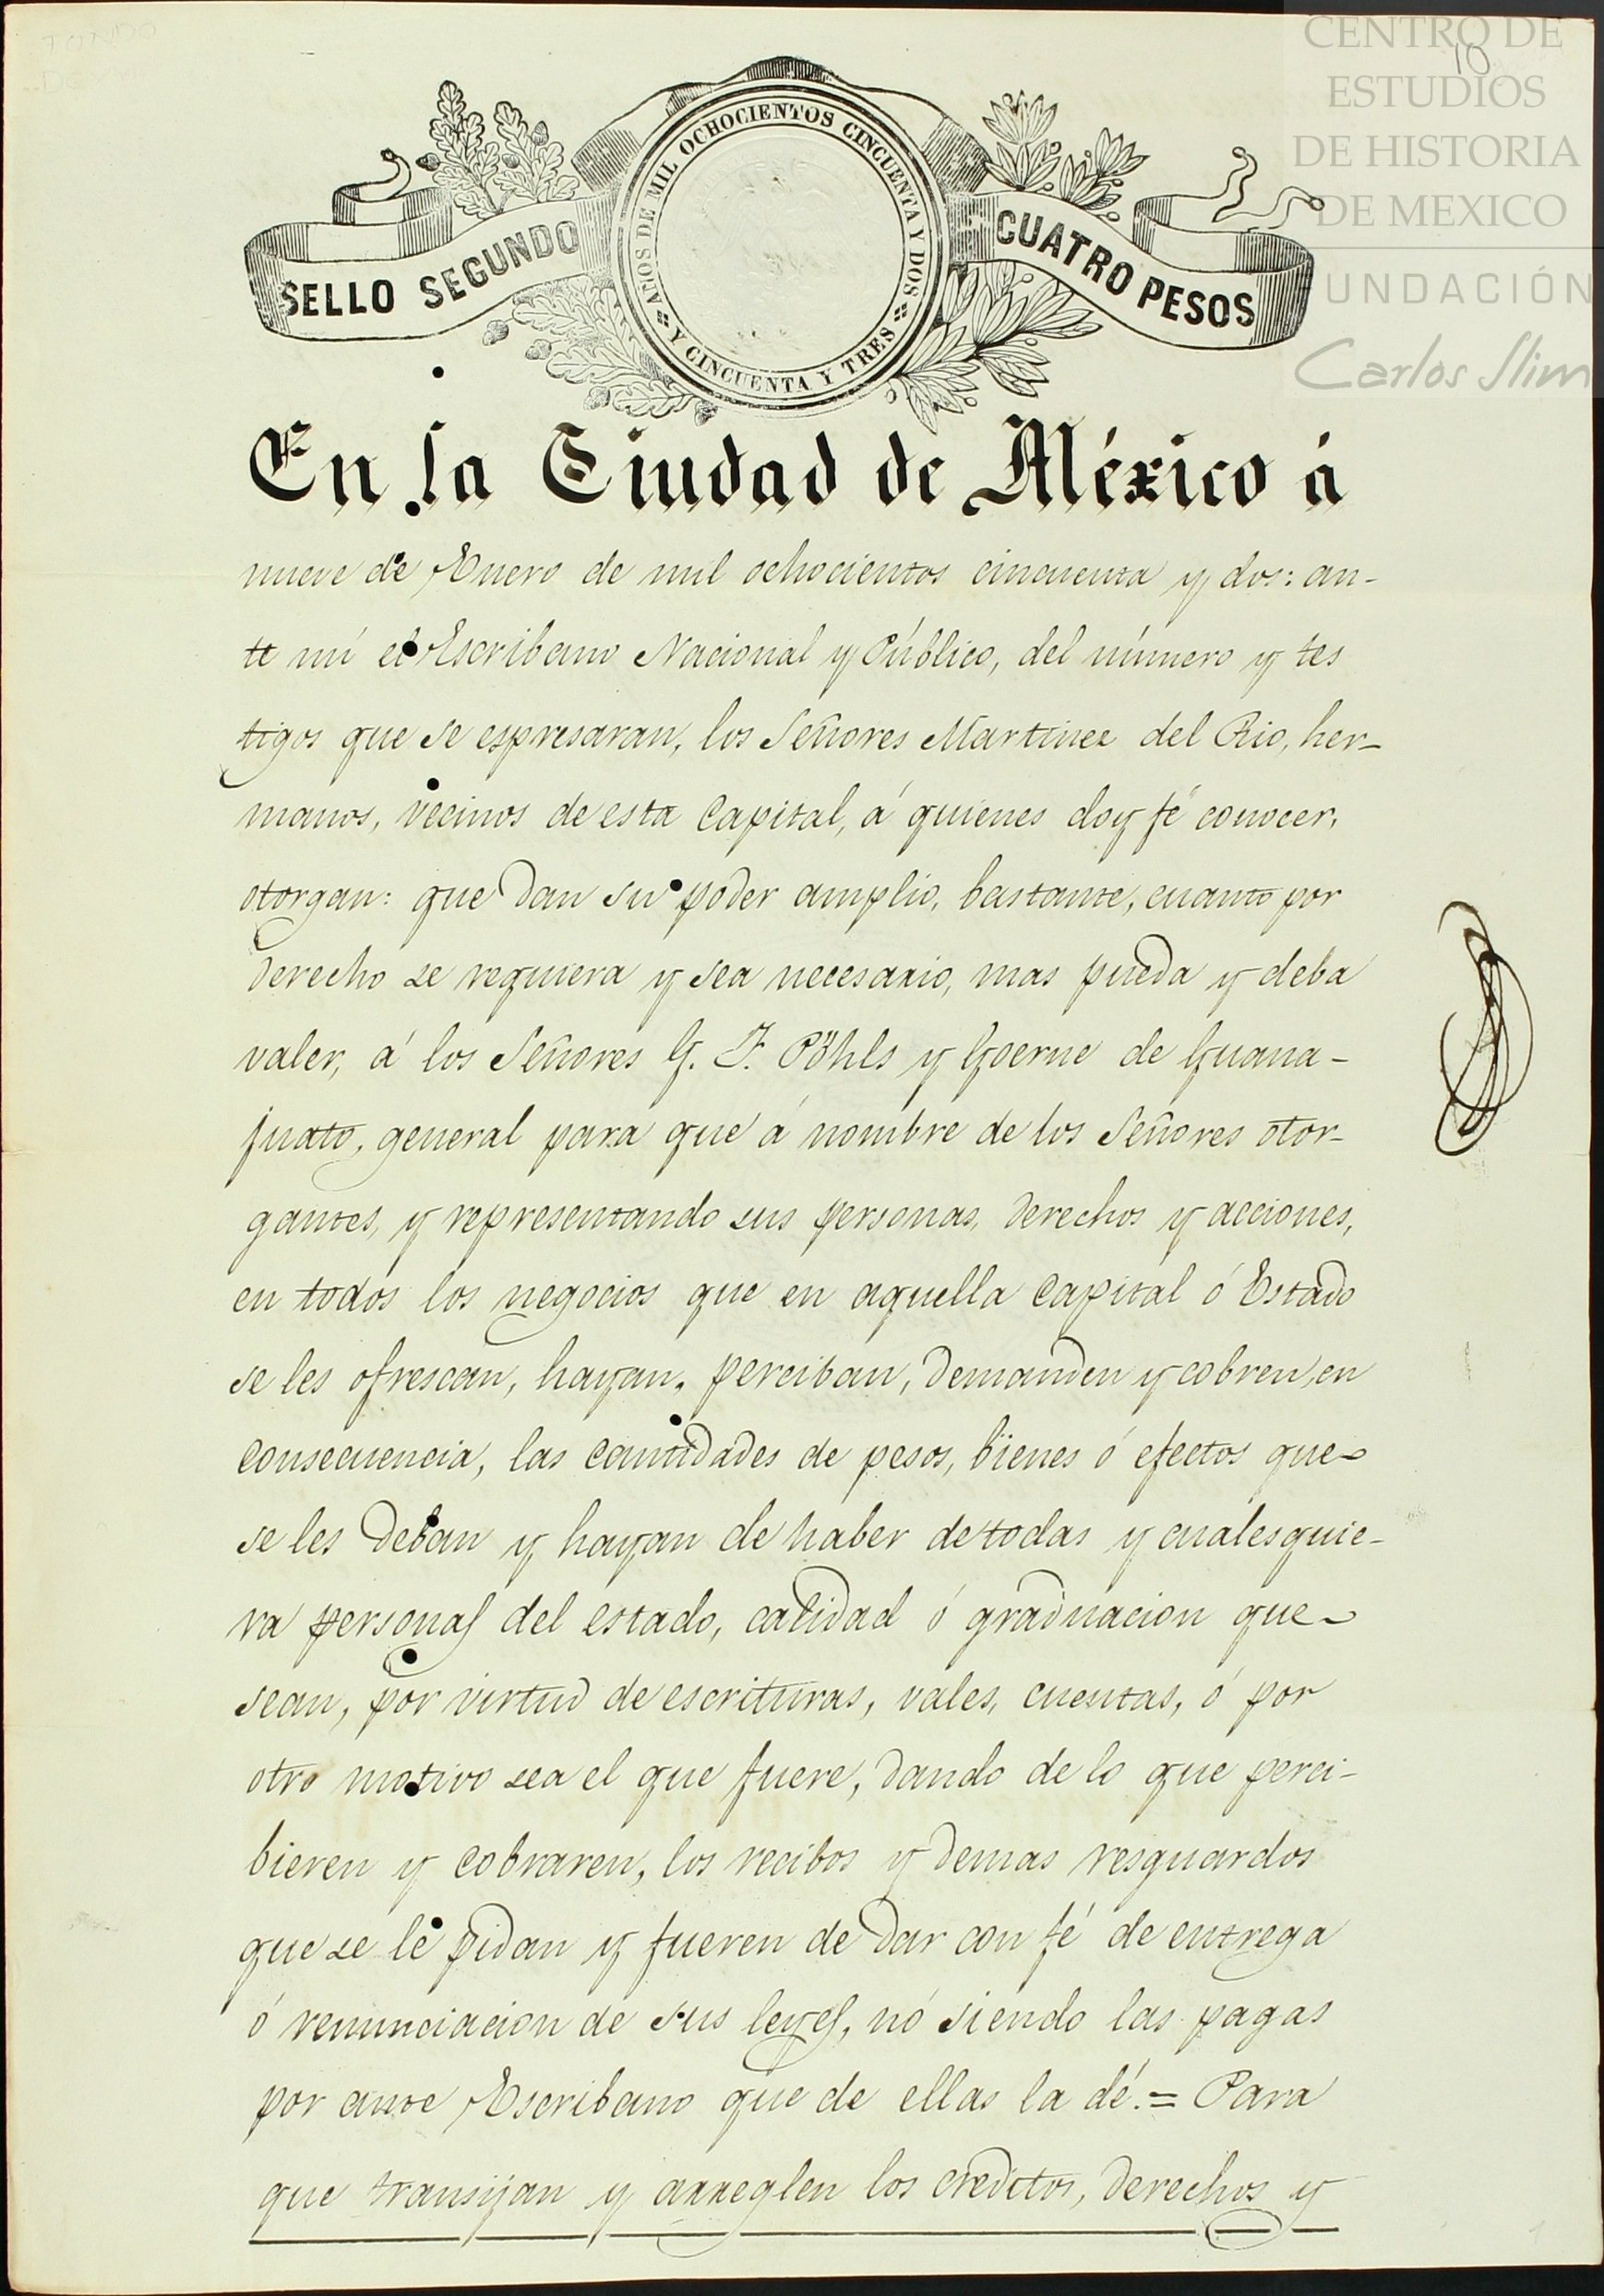 CENTRO DE
ESTUDIOS
DE HISTORIA
DE MEXICO
FUNDACIÓN
Carlos Slim
10
SELLO SEGUNDO
AÑOS DE MIL OCHOCIENTOS CINCUENTA Y DOS
Y CINCUENTA Y TRES
CUATRO PESOS
En la Ciudad de México á
nueve de Enero de mil ochocientos cincuenta y dos: an-
te mí el Escribano Nacional y Público, del número y tes
tigos que se espresaran, los Señores Martinez del Rio, her-
manos, vecinos de esta Capital, á quienes doy fé conocer,
otorgan: que dan su poder amplio, bastante, cuanto por
derecho se requiera y sea necesario, mas pueda y deba
valer, á los Señores G. F. Pöhls y Goerne de Guana-
juato, general para que á nombre de los Señores otor-
gantes, y representando sus personas, derechos y acciones,
en todos los negocios que en aquella Capital ó Estado
se les ofrescan, hayan, perciban, demanden y cobren, en
consecuencia, las cantidades de pesos, bienes ó efectos que
se les deban y hayan de haber de todas y cualesquie-
ra personas del estado, calidad ó graduacion que
sean, por virtud de escrituras, vales, cuentas, ó por
otro motivo sea el que fuere, dando de lo que perci-
bieren y cobraren, los recibos y demas resguardos
que se le pidan y fueren de dar con fé de entrega
ó renunciacion de sus leyes, nó siendo las pagas
por ante Escribano que de ellas la dé. = Para
que transijan y arreglen los creditos, derechos y